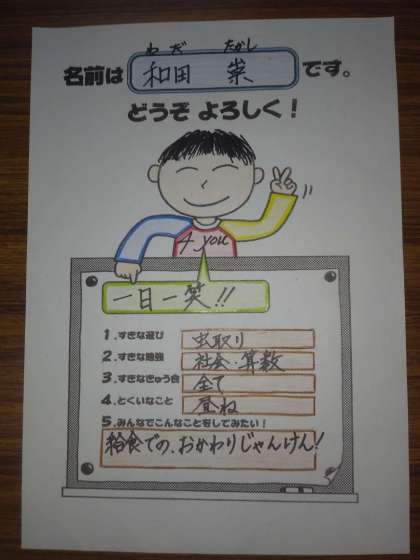 わだ たかし
名前は 和田 崇 です。
どうぞ よろしく！
4 you
一日一笑!!
1.すきな遊び 虫取り
2.すきな勉強 社会・算数
3.すきなきゅう食 全て
4.とくいなこと 昼ね
5.みんなでこんなことをしてみたい！
給食での、おかわりじゃんけん!